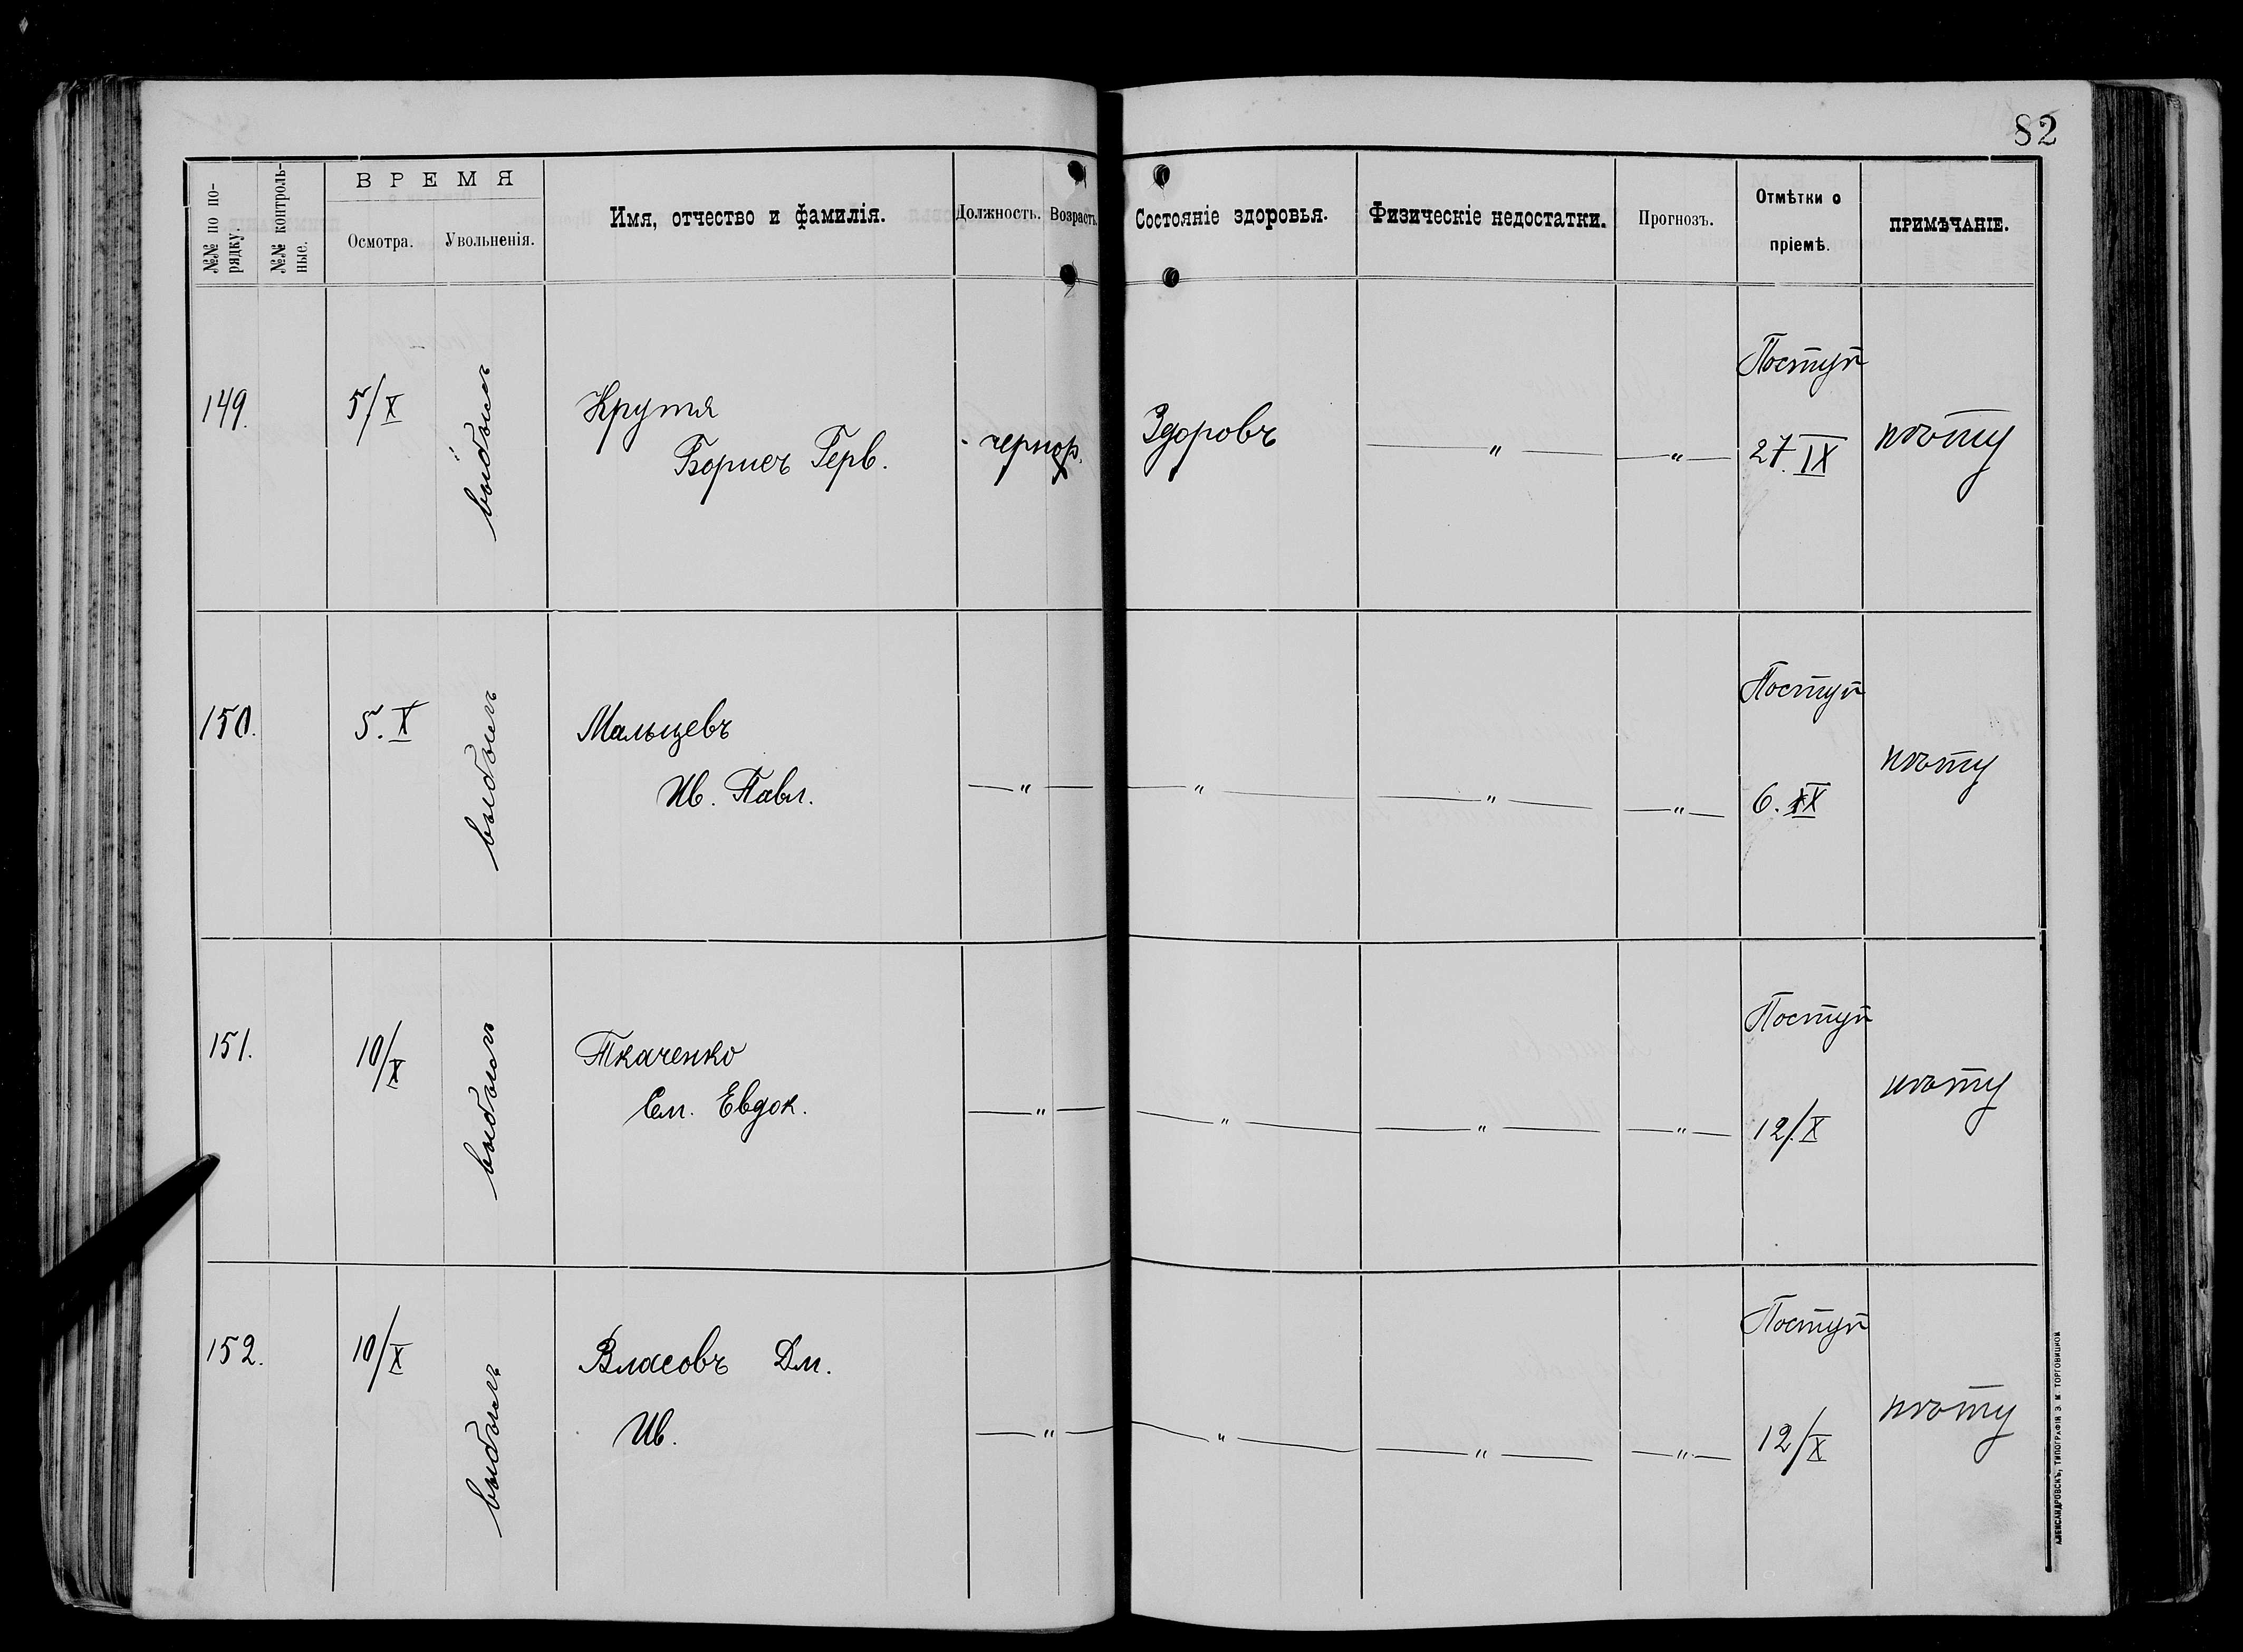 82
№№ по по-
рядку.
№№ контроль-
ные.
ВРЕМЯ
Осмотра.
Увольненія.
Имя, отчество и фамилія.
Должность.
Возрастъ.
Состояніе здоровья.
Физическіе недостатки.
Прогнозъ.
Отмѣтки о
пріемѣ.
ПРИМѢЧАНІЕ.
149.
5/X
выбылъ
Крутя
Борисъ Герв.
чернор.
Здоровъ
—„—
—„—
Поступ
27.IX
150.
5.X
выбылъ
Мальцевъ
Ив. Павл.
—„—
—„—
—„—
—„—
Поступ
6.
151.
10/X
выбылъ
Ткаченко
Сем. Евдок.
—„—
—„—
—„—
—„—
Поступ
12/X
152.
10/X
выбылъ
Власовъ Дм.
Ив.
—„—
—„—
—„—
—„—
Поступ
12/X
АЛЕКСАНДРОВСКЪ, ТИПОГРАФІЯ Э. М. ТОРГОВИЦКОЙ